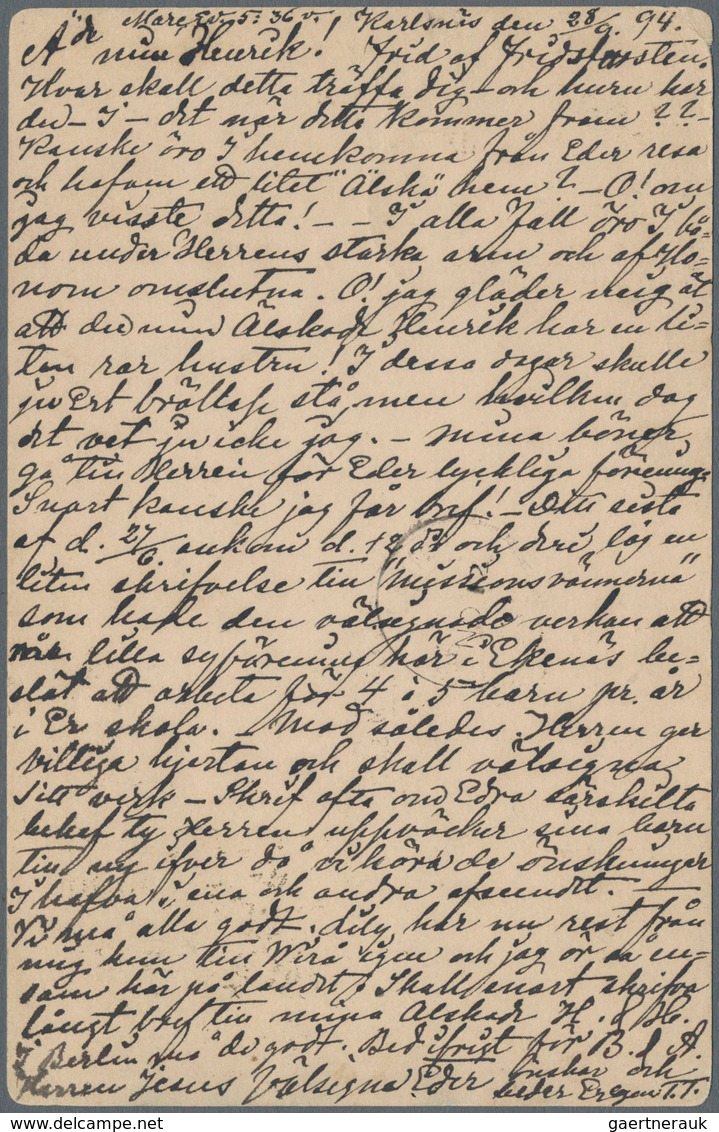 Marc. Ev. 5: 36 v. Karlsnäs den 28/9. 94.
Äde min Henrik! Frid af Fridsfursten.
Hvar skall detta träffa dig - och huru har
du - I - det när detta kommer fram? ? -
Kanske äro I hemkomna från Eder resa
och hafven ett litet "Älskä" hem? - O! om
jag visste detta! - - I alla fall äro I bå-
da under Herrens starka arm och af Ho-
nom omslutna. O! jag gläder mig åt
att du min Älskade Henrik har en li-
ten rar hustru! I dessa dagar skulle
ju Ert bröllop stå, men hvilken dag
det vet ju icke jag. - Mina böner
gå till Herren för Eder lyckliga förening.
Snart kanske jag får bref! - Ditt sista
af d. 27/6. ankom d. 12 ds och deri låg en
liten skrifvelse till "Missionsvännerna"
som hade den välsignade verkan att
vår lilla syförening här i Ekenäs be-
slöt att arbeta för 4 à 5 barn pr. år
i Er skola. - Mod således. Herren ger
villiga hjertan och skall välsigna
sitt verk - Skrif ofta om Edra särskilta
behof ty Herren uppväcker sina barn
till ny ifver då vi höra de önskningar
I hafva i ena och andra afseendet. -
Vi må alla godt. Lily har nu rest från
mig hem till Wirå igen och jag är så en-
sam här på landet. Skall snart skrifva
långt bref till mina Älskade H. & H.
I Berlin må de godt. Bed ifrigt för B. & A.
Herren Jesus Välsigne Eder önskar och
beder Er egen T. T.
gaertnerauk @ gaertnerauk